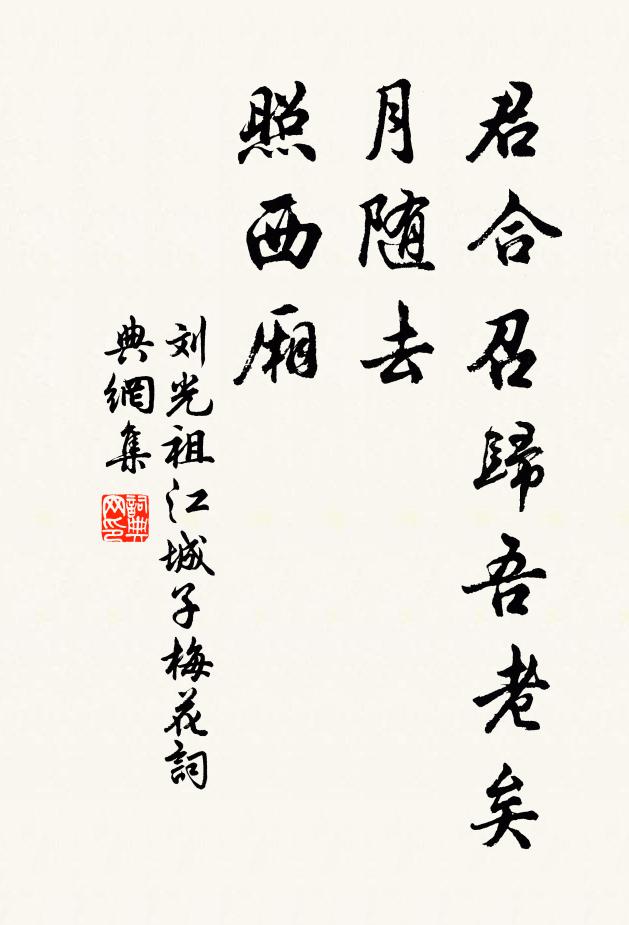 君合召歸吾老矣
月随去
照西厢
刘光祖江城子梅花詞
典網集
詞典
网印